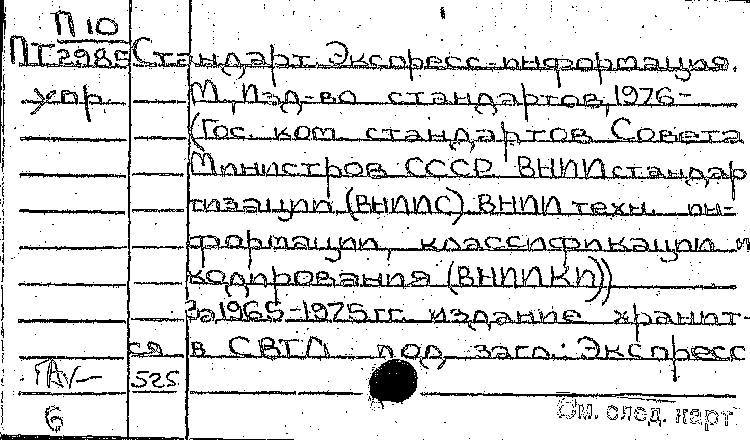 П 10
ПТ2985 Стандарт. Экспресс-информация.
Упр. М., Изд-во стандартов, 1976-
(Гос. ком. стандартов Совета
Министров СССР. ВНИИ стандар
тизации (ВНИИС). ВНИИ техн. ин-
формации, классификации и
кодирования (ВНИИКИ))
За 1965-1975 гг. издание хранит-
ся в СВТЛ под загл.: Экспресс
525
6 См. след. карт